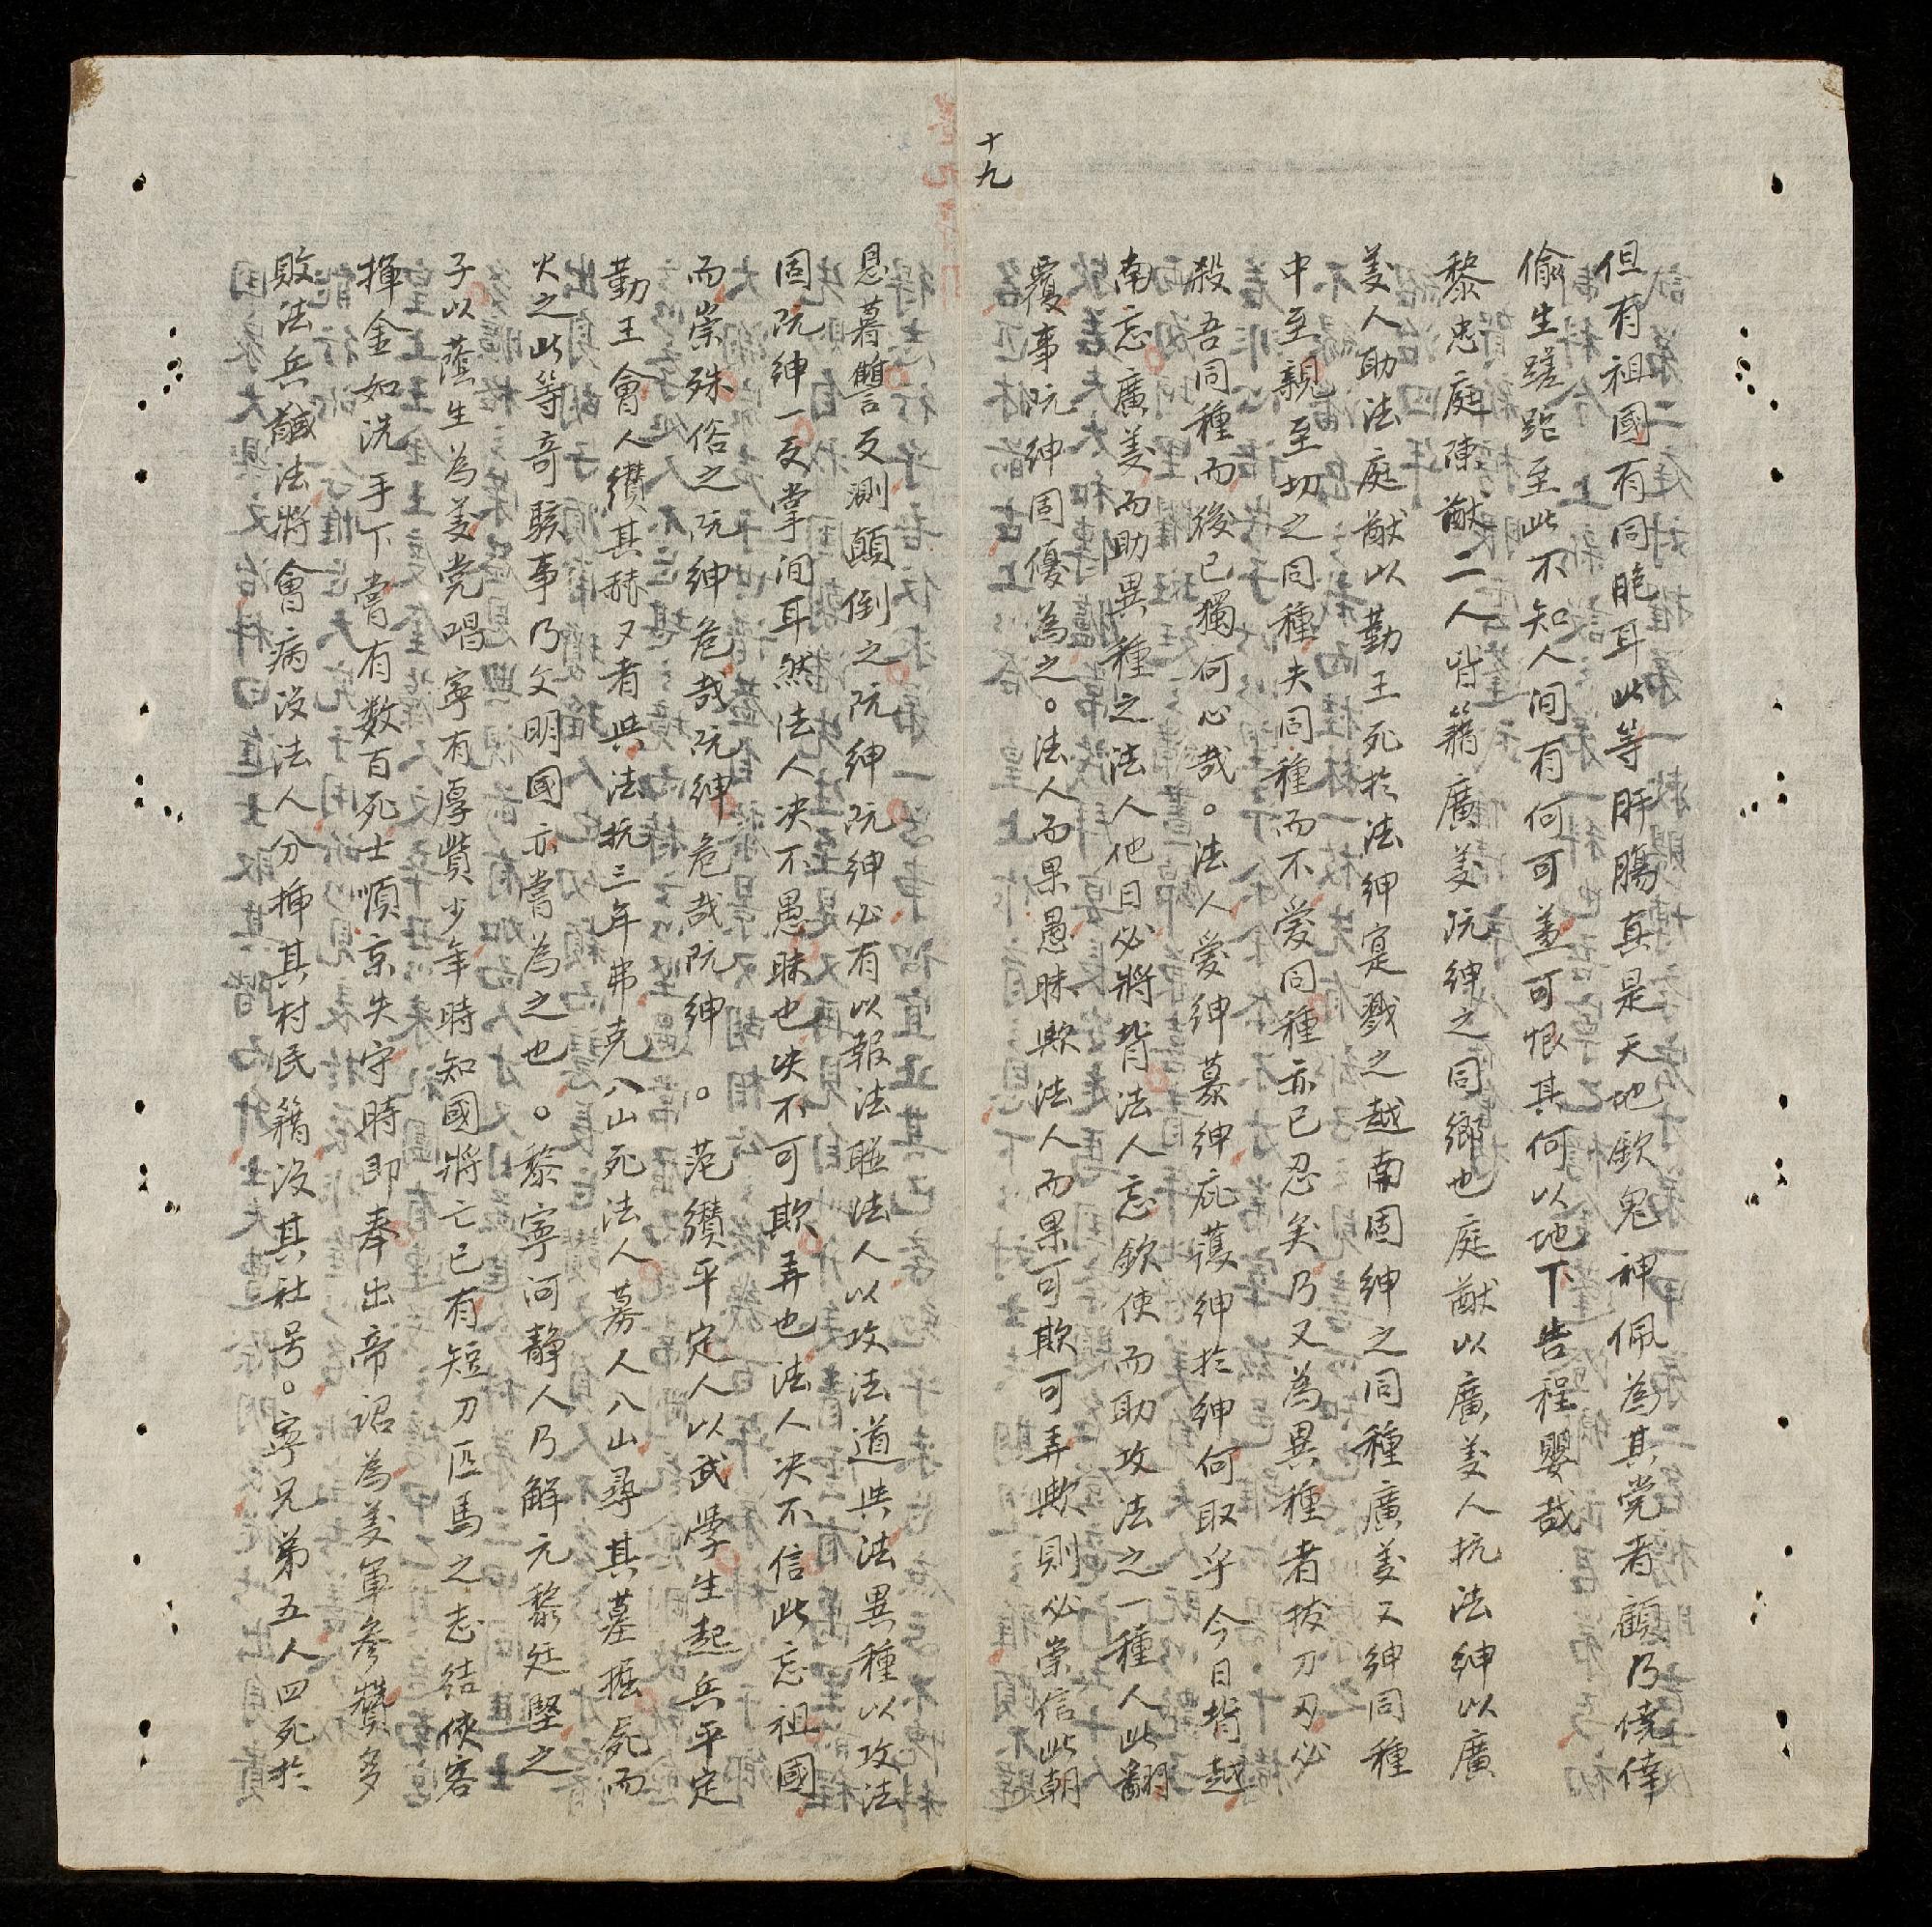 十九
但有祖國有同胞耳此等肝膓真是天地欽鬼神佩為其党者顧乃僥倖
偷生蹉跎至此不知人间有何可羞可恨其何以地下告程嬰哉
黎忠庭陳猷二人皆籍廣羙阮紳之同鄉也庭猷以廣羙人抗法紳以廣
羙人助法庭猷以勤王死於法紳寔戮之越南固紳之同種廣羙又紳同種
中至親至切之同種夫同種而不爱同種亦已忍矣乃又為異種者拔刀刃必
殺吾同種而後已獨何心哉。法人爱紳慕紳庇護紳於紳何取乎今日背越
南忘廣羙而助異種之法人他日必將背法人忘欽使而助攻法之一種人此翻
覆事阮紳固優為之。法人而果愚昧欺法人而果可欺可弄欺則必崇信此朝
恩暮讐反測顛倒之阮紳阮紳必有以報法聪法人以攻法道共法異種以攻法
固阮紳一反掌间耳然法人决不愚昧也决不可欺弄也法人决不信此忘祖國
而崇殊俗之阮紳危哉阮紳危哉阮紳。范纘平定人以武學生起兵平定
勤王會人纘其赫又者共法抗三年弗克八山死法人募人八山尋其墓掘屍而
火之此等奇駭事乃文明國亦嘗為之也。黎寧河靜人乃解元黎廷堅之
子以蔭生為羙党唱寧有厚貲少年時知國將亡已有短刀匹馬之志結俠客
揮金如洗手下嘗有数百死士順京失守時即奉出帝诏為羙軍参贊多
敗法兵馘法將會病没法人分揷其村民籍没其社号。寧兄弟五人四死於